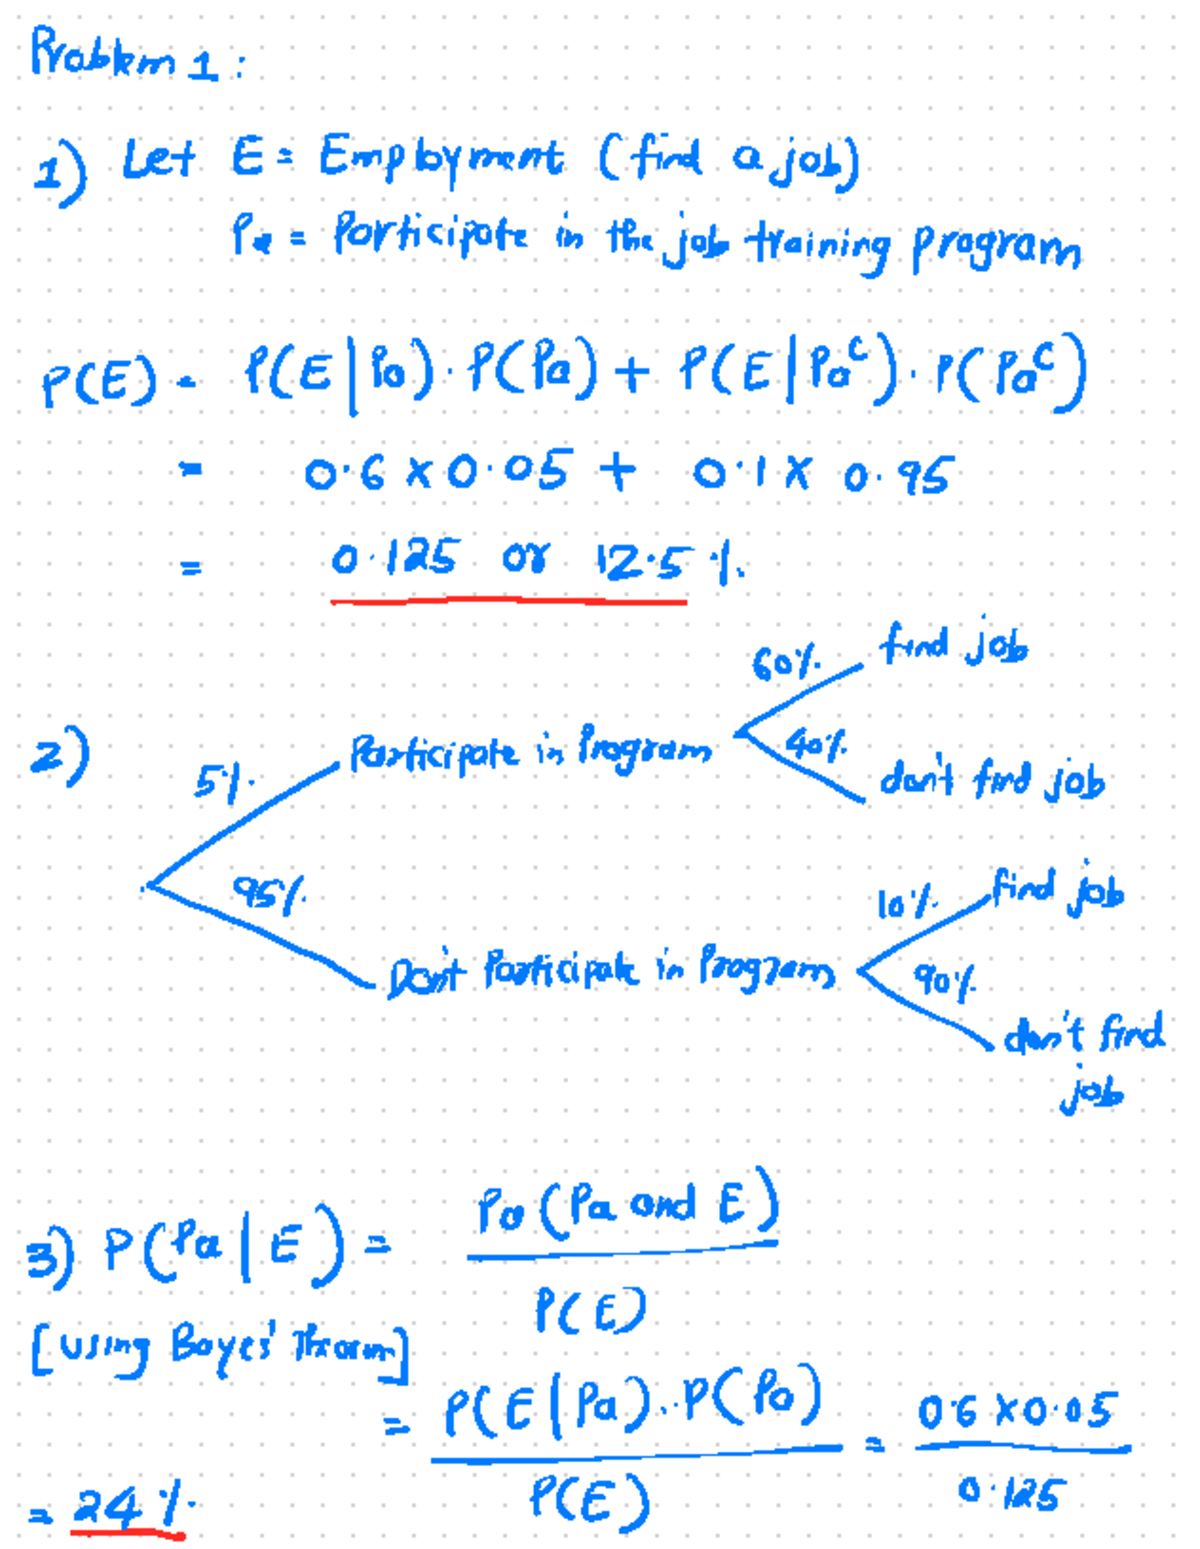 Problem 1:
1) Let E = Employment (find a job)
Pa = Participate in the job training program
P(E) = P(E|Pa) · P(Pa) + P(E|Paᶜ) · P(Paᶜ)
= 0.6 × 0.05 + 0.1 × 0.95
= 0.125 or 12.5 %
2)
5%
Participate in Program
60%
find job
40%
don't find job
95%
Don't Participate in Program
10%
find job
90%
don't find
job
3) P(Pa|E) = Pa(Pa and E) / P(E)
[Using Bayes' Theorem]
= P(E|Pa) · P(Pa) / P(E) = 0.6 × 0.05 / 0.125
= 24 %